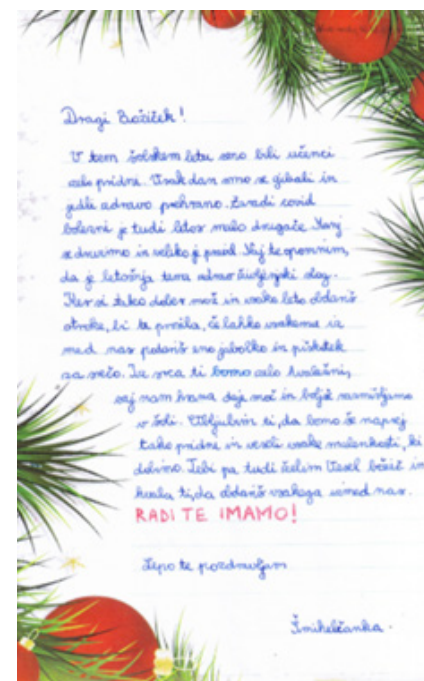 Dragi Božiček!
V tem šolskem letu smo bili učenci
celo pridni. Vsak dan smo se gibali in
jedli zdravo prehrano. Zaradi covid
bolezni je tudi letos malo drugače. Manj
se družimo in veliko je pravil. Naj te spomnim,
da je letošnja tema zdrav življenjski slog.
Ker si tako dober mož in vsako leto obdariš
otroke, bi te prosila, če lahko vsakemu iz
med nas podariš eno jabolko in piškotek
za srečo. Iz srca ti bomo zelo hvaležni,
saj nam hrana daje moč in boljše razmišljamo
v šoli. Obljubim ti, da bomo še naprej
tako pridni in veseli vsake malenkosti, ki
dobimo. Tebi pa tudi želim Vesel božič in
hvala ti, da obdariš vsakega izmed nas.
RADI TE IMAMO!
Lepo te pozdravljam
Šmihelčanka.